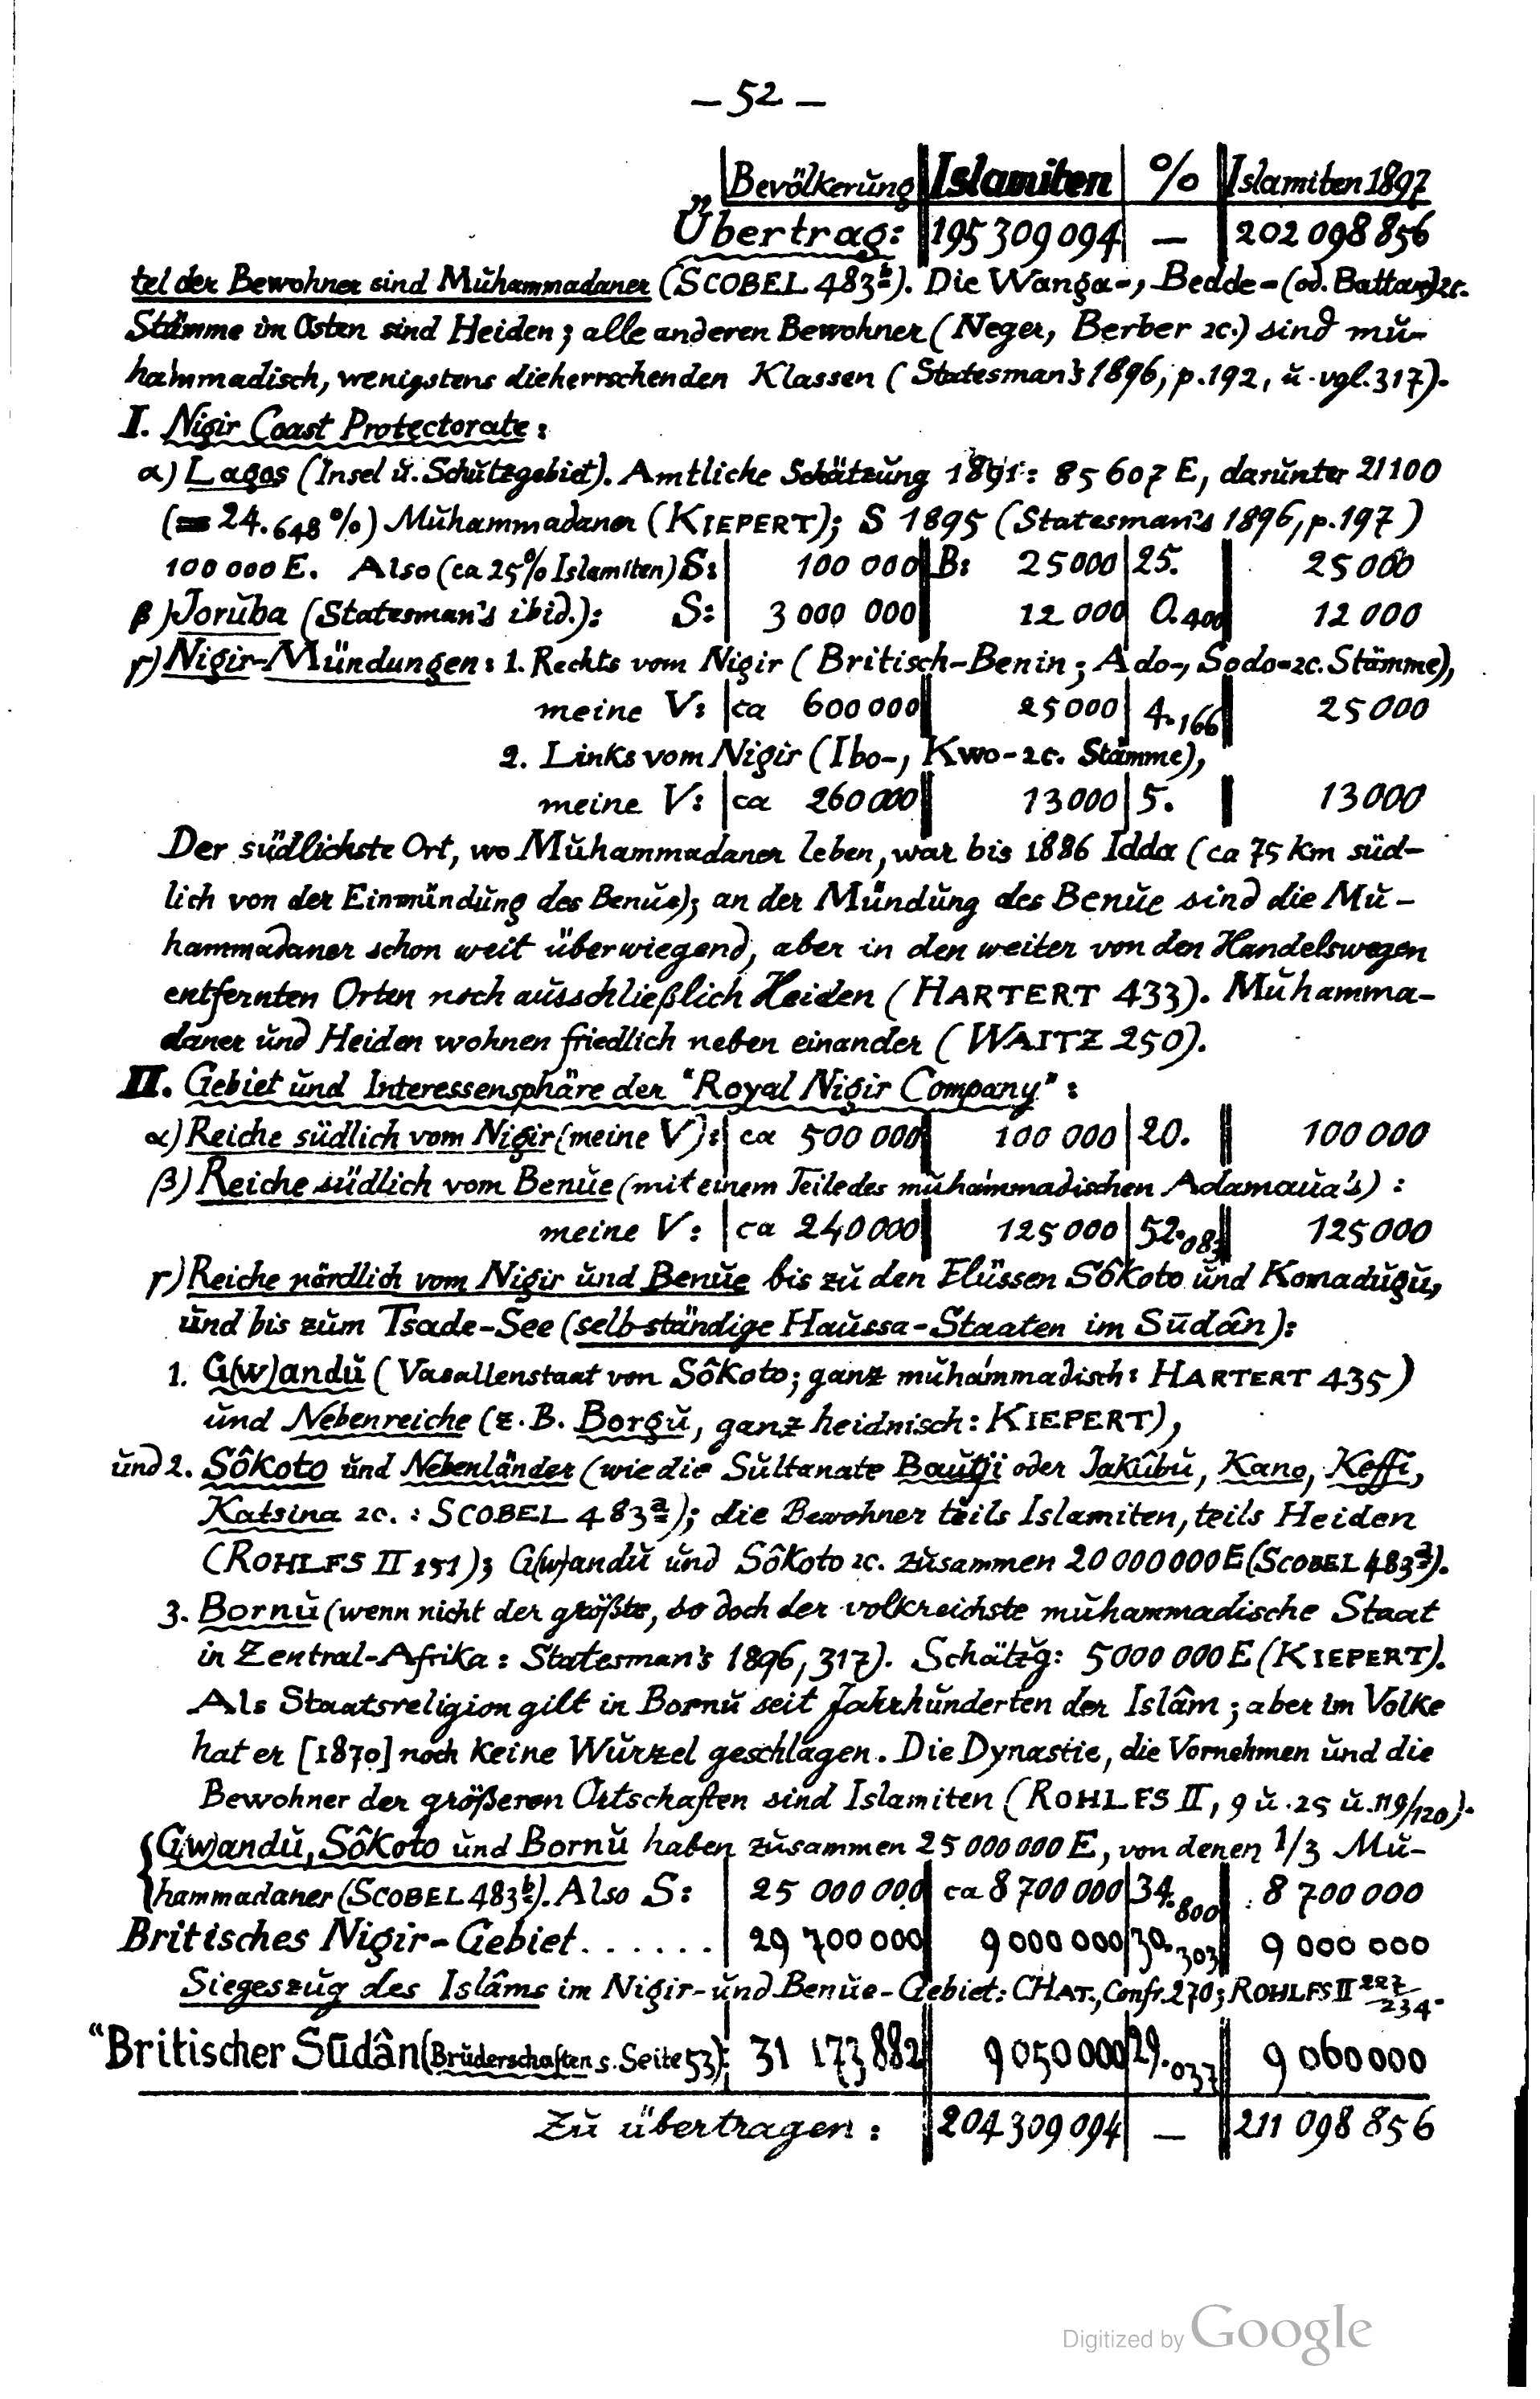 – 52 –
Bevölkerung Islamiten % Islamiten 1897
Übertrag: 195 309 094 — 202 098 856
tel der Bewohner sind Muhammadaner (SCOBEL 483b). Die Wanga-, Bedde-(od. Battar) 2c.
Stämme im Osten sind Heiden; alle anderen Bewohner (Neger, Berber 2c.) sind mu-
hammadisch, wenigstens die herrschenden Klassen (Statesman's 1896, p. 192, u. vgl. 317).
I. Nigir Coast Protectorate:
α) Lagos (Insel u. Schutzgebiet). Amtliche Schätzung 1891: 85 607 E, darunter 21100
(= 24.648 %) Muhammadaner (KIEPERT); S 1895 (Statesman's 1896, p. 197)
100 000 E. Also (ca 25% Islamiten) S: 100 000 B: 25 000 25. 25 000
β) Joruba (Statesman's ibid.): S: 3 000 000 12 000 0.400 12 000
γ) Nigir-Mündungen: 1. Rechts vom Nigir (Britisch-Benin; Ado-, Sodo- 2c. Stämme),
meine V: ca 600 000 25 000 4.166 25 000
2. Links vom Nigir (Ibo-, Kwo- 2c. Stämme),
meine V: ca 260 000 13 000 5. 13 000
Der südlichste Ort, wo Muhammadaner leben, war bis 1886 Idda (ca 75 km süd-
lich von der Einmündung des Benue); an der Mündung des Benue sind die Mu-
hammadaner schon weit überwiegend, aber in den weiter von den Handelswegen
entfernten Orten noch ausschließlich Heiden (HARTERT 433). Muhamma-
daner und Heiden wohnen friedlich neben einander (WAITZ 250).
II. Gebiet und Interessensphäre der "Royal Nigir Company":
α) Reiche südlich vom Nigir (meine V): ca 500 000 100 000 20. 100 000
β) Reiche südlich vom Benue (mit einem Teile des muhammadischen Adamaua's):
meine V: ca 240 000 125 000 52.083 125 000
γ) Reiche nördlich vom Nigir und Benue bis zu den Flüssen Sôkoto und Komadugu,
und bis zum Tsade-See (selbständige Haussa-Staaten im Sūdân):
1. G(w)andu (Vasallenstaat von Sôkoto; ganz muhámmadisch: HARTERT 435)
und Nebenreiche (z. B. Borgu, ganz heidnisch: KIEPERT),
und 2. Sôkoto und Nebenländer (wie die Sultanate Bautji oder Jakûbu, Kano, Keffi,
Katsina 2c.: SCOBEL 483a); die Bewohner teils Islamiten, teils Heiden
(ROHLFS II 151); G(w)andu und Sôkoto 2c. zusammen 20 000 000 E (SCOBEL 483a).
3. Bornu (wenn nicht der größte, so doch der volkreichste muhammadische Staat
in Zentral-Afrika: Statesman's 1896, 317). Schätzg: 5 000 000 E (KIEPERT).
Als Staatsreligion gilt in Bornu seit Jahrhunderten der Islâm; aber im Volke
hat er [1870] noch keine Wurzel geschlagen. Die Dynastie, die Vornehmen und die
Bewohner der größeren Ortschaften sind Islamiten (ROHLFS II, 9 u. 25 u. 119/120).
G(w)andu, Sôkoto und Bornu haben zusammen 25 000 000 E, von denen 1/3 Mu-
hammadaner (SCOBEL 483b). Also S: 25 000 000 ca 8 700 000 34.800 8 700 000
Britisches Nigir-Gebiet...... 29 700 000 9 000 000 30.303 9 000 000
Siegeszug des Islâms im Nigir- und Benue-Gebiet: CHAT., Confr. 270; ROHLFS II 227/234.
"Britischer Sūdân (Bruderschaften s. Seite 53): 31 173 882 9 050 000 29.037 9 060 000
Zu übertragen: 204 309 094 — 211 098 856
Digitized by Google